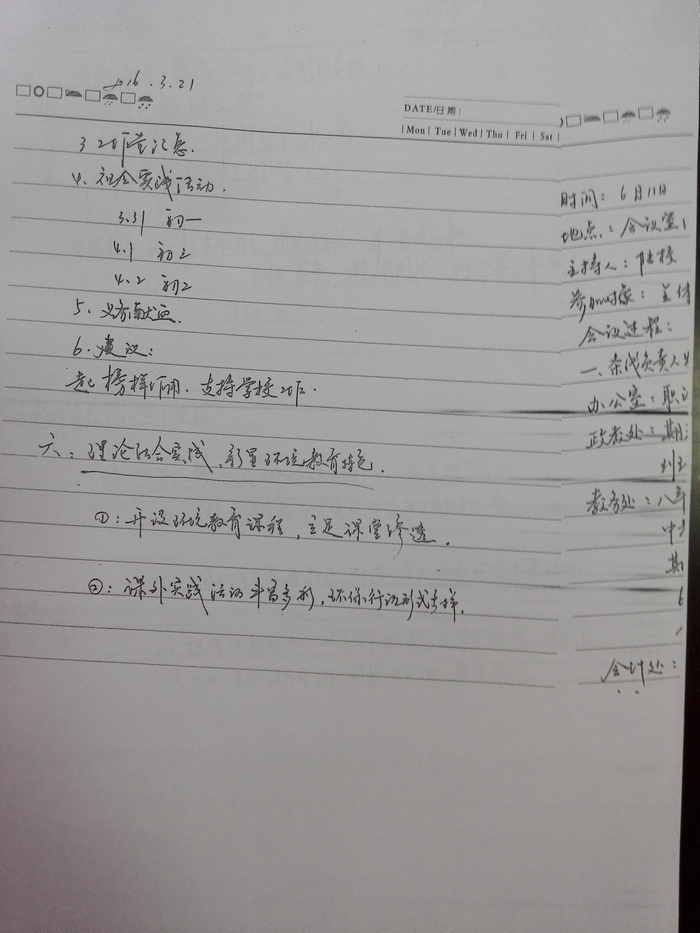 2016.3.21
DATE/日期:
Mon | Tue | Wed | Thu | Fri | Sat
3
4. 社会实践活动.
3.31 初一
4.1 初三
4.2 初2
5. 义务献血.
6. 建议:
起榜样作用. 支持学校工作.
六: 理论结合实践, 彰显环境教育特色.
①: 开设环境教育课程, 立足课堂渗透.
②: 课外实践活动丰富多彩, 环保行动形式多样.
时间: 6月11日
地点: 会议室
主持人: 陆校
参加对象: 全体
会议过程:
一、条线负责人
办公室: 职
政教处: 期
教务处: 八年
中
期
会计处: